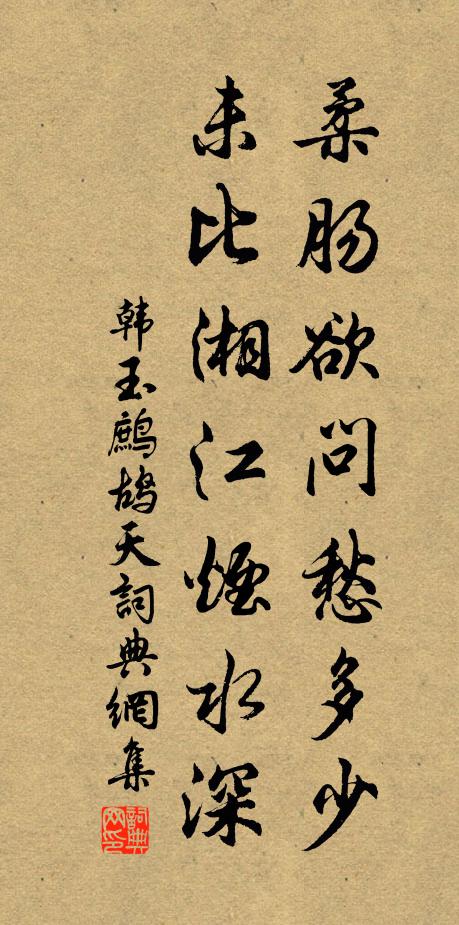 柔肠欲问愁多少
未比湘江煙水深
韩玉鹧鸪天詞典網集
詞典网印